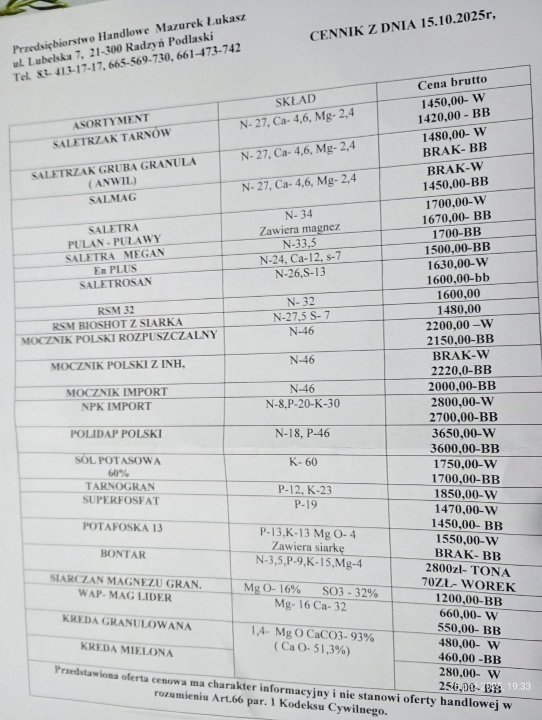 Przedsiębiorstwo Handlowe Mazurek Łukasz
ul. Lubelska 7, 21-300 Radzyń Podlaski
Tel. 83- 413-17-17, 665-569-730, 661-473-742
CENNIK Z DNIA 15.10.2025r,
ASORTYMENT SKŁAD Cena brutto
SALETRZAK TARNÓW N- 27, Ca- 4,6, Mg- 2,4 1450,00- W
1420,00 - BB
SALETRZAK GRUBA GRANULA N- 27, Ca- 4,6, Mg- 2,4 1480,00- W
( ANWIL) BRAK- BB
SALMAG N- 27, Ca- 4,6, Mg- 2,4 BRAK-W
1450,00-BB
SALETRA N- 34 1700,00-W
PULAN - PUŁAWY Zawiera magnez 1670,00- BB
SALETRA MEGAN N-33,5 1700-BB
En PLUS N-24, Ca-12, s-7 1500,00-BB
SALETROSAN N-26,S-13 1630,00-W
1600,00-bb
RSM 32 N- 32 1600,00
RSM BIOSHOT Z SIARKA N-27,5 S- 7 1480,00
MOCZNIK POLSKI ROZPUSZCZALNY N-46 2200,00 –W
2150,00-BB
MOCZNIK POLSKI Z INH, N-46 BRAK-W
2220,0-BB
MOCZNIK IMPORT N-46 2000,00-BB
NPK IMPORT N-8,P-20-K-30 2800,00-W
2700,00-BB
POLIDAP POLSKI N-18, P-46 3650,00-W
3600,00-BB
SÓL POTASOWA K- 60 1750,00-W
60% 1700,00-BB
TARNOGRAN P-12, K-23 1850,00-W
SUPERFOSFAT P-19 1470,00-W
1450,00- BB
POTAFOSKA 13 P-13,K-13 Mg O- 4 1550,00-W
Zawiera siarkę BRAK- BB
BONTAR N-3,5,P-9,K-15,Mg-4 2800zł- TONA
70ZŁ- WOREK
SIARCZAN MAGNEZU GRAN. Mg O- 16% SO3 - 32% 1200,00-BB
WAP- MAG LIDER Mg- 16 Ca- 32 660,00- W
550,00- BB
KREDA GRANULOWANA 1,4- Mg O CaCO3- 93% 480,00- W
( Ca O- 51,3%) 460,00 -BB
KREDA MIELONA 280,00- W
BB
19:33
Przedstawiona oferta cenowa ma charakter informacyjny i nie stanowi oferty handlowej w
rozumieniu Art.66 par. 1 Kodeksu Cywilnego.